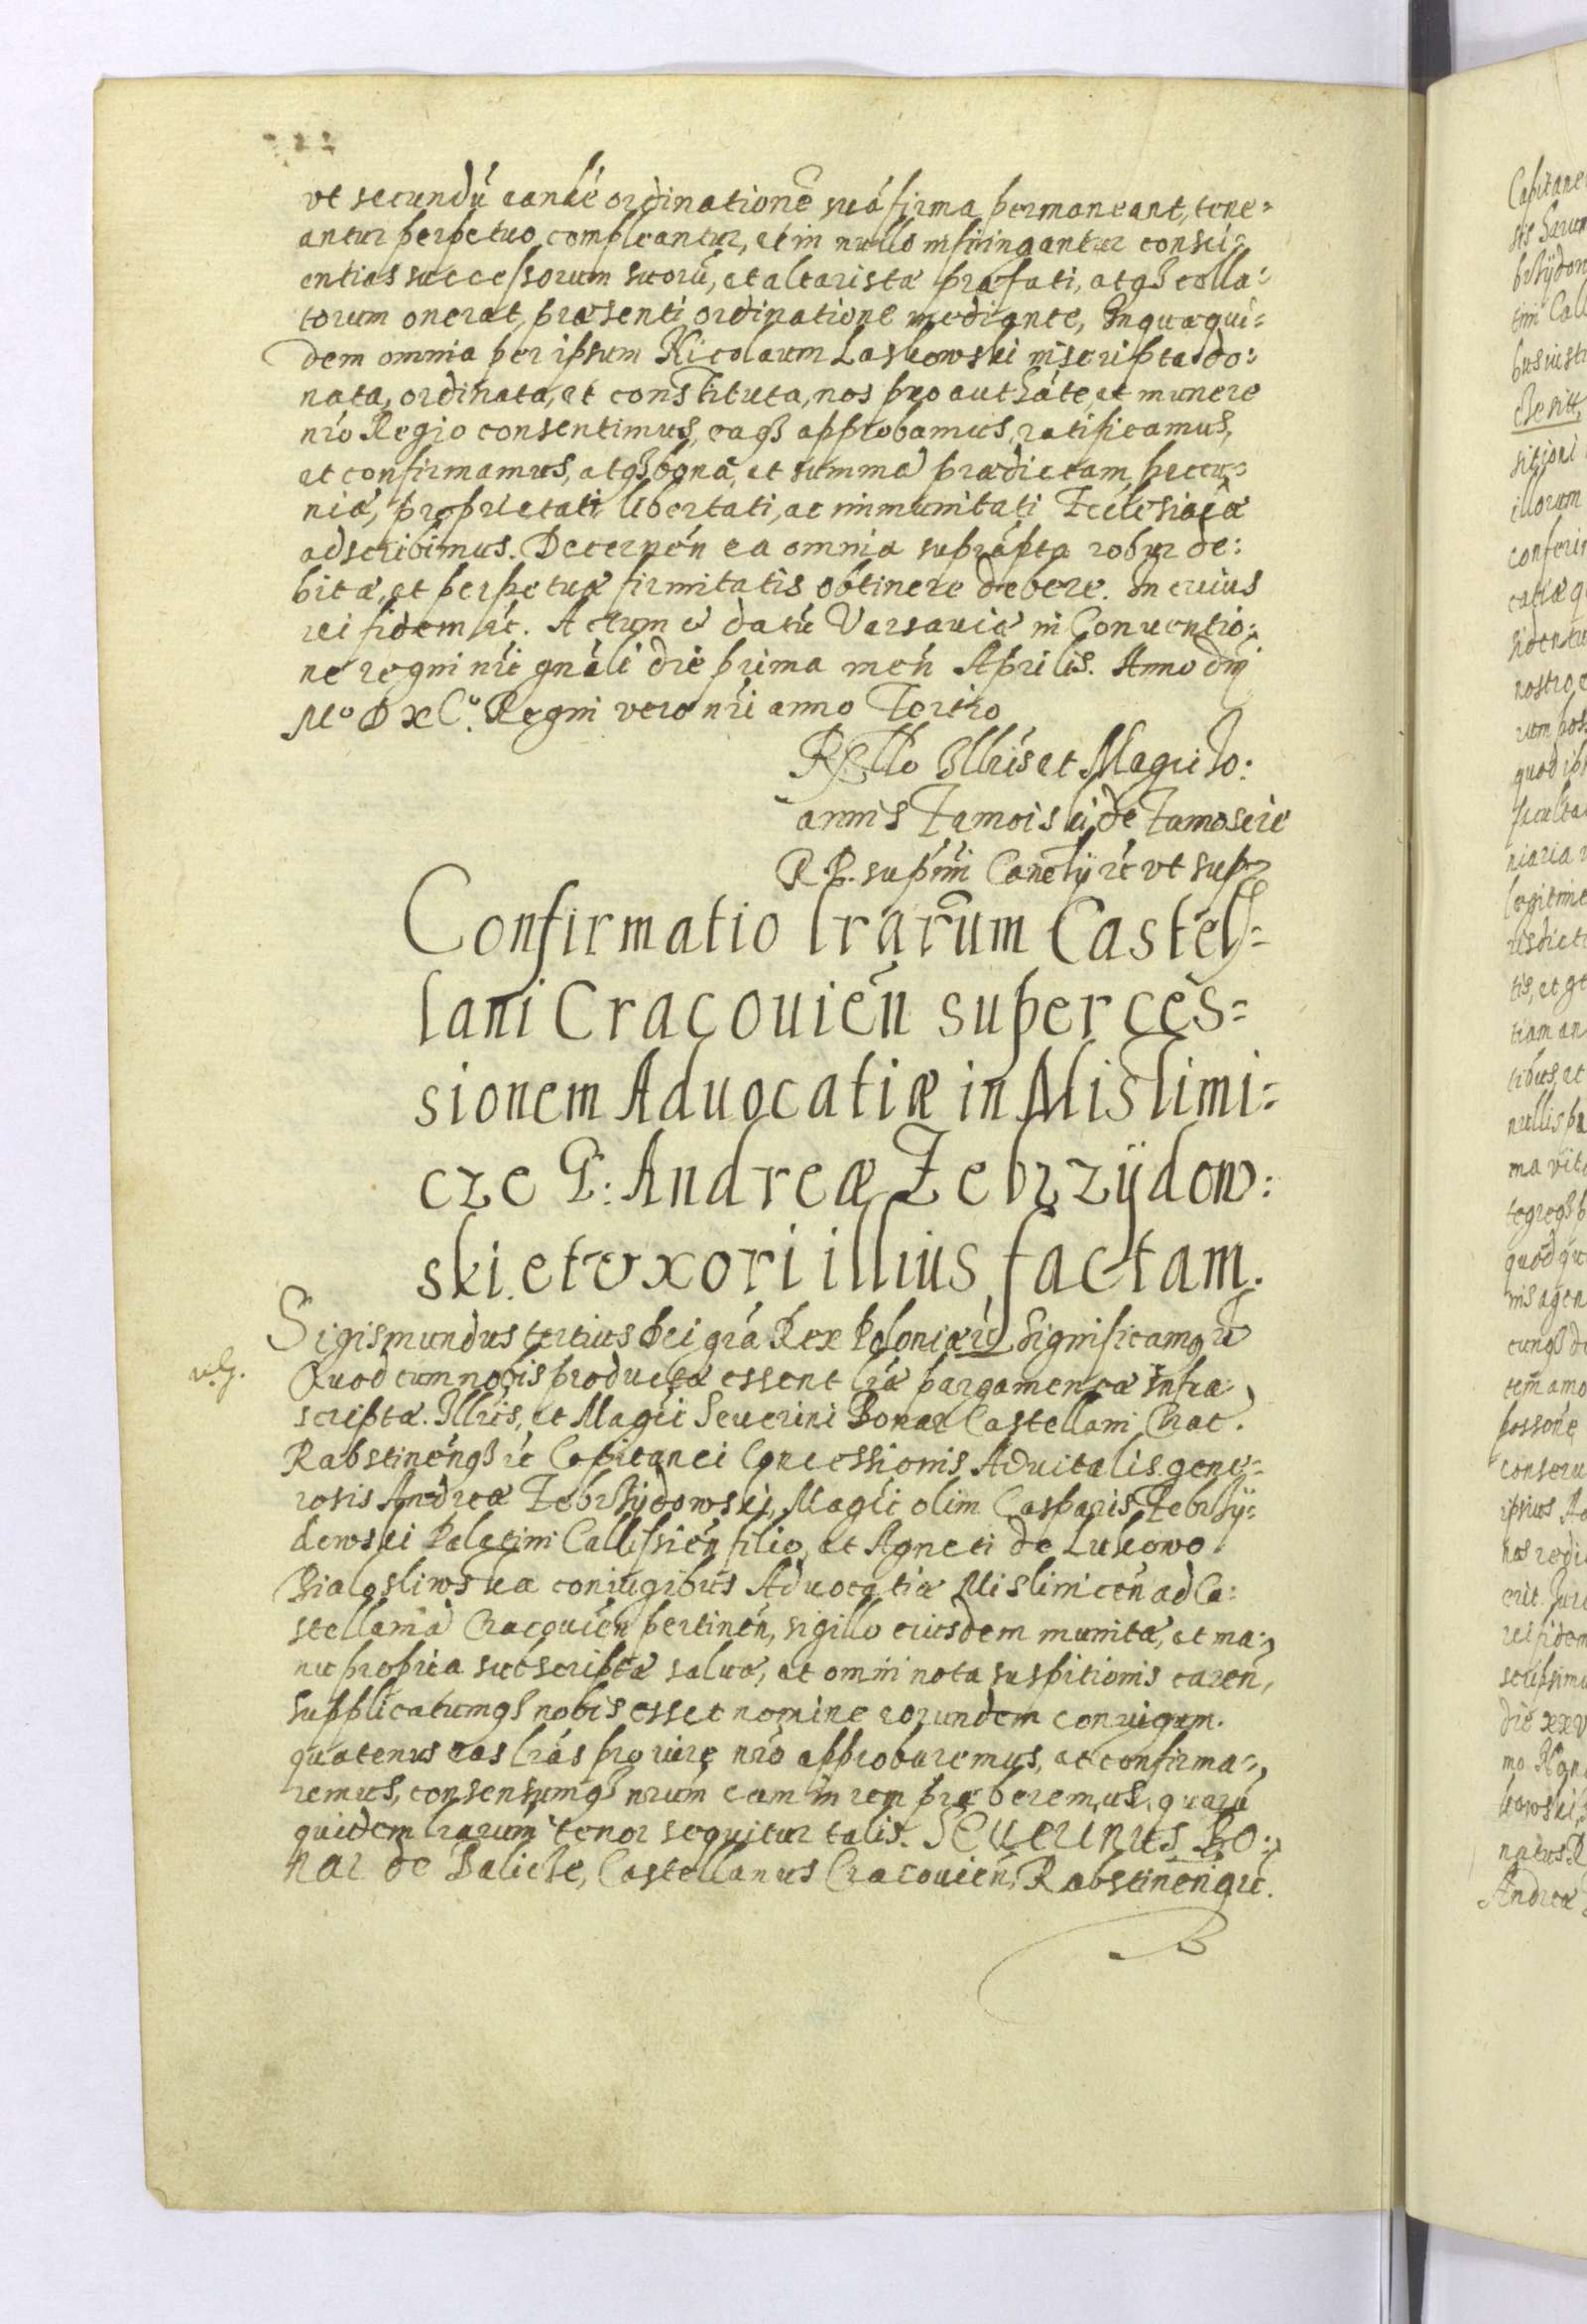 vt secundū eandē ordinationē suā firma permaneant, tene-
antur perpetuo, compleantur, et in nullo infringantur consci-
entias successorum suorū, et altaristæ præfati, atqȝ colla-
torum onerat, præsenti ordinatione mediante, In quæ qui-
dem omnia per ipsum Nicolaum Laskowski inscripta do-
nata, ordinata, et constituta, nos pro authāte, et munere
nŕo Regio consentimus, eaqȝ approbamus, ratificamus,
et confirmamus, atqȝ bona, et summā prædictam pecu-
niæ, proprietati libertati, ac immunitati Ecclesiacæ
adscribimus. Decernēn ea omnia suprápta robur de-
bitæ, et perpetuæ firmitatis obtinere debere. In cuius
rei fidem ac̄. Actum et datū Varsauiæ in Conuentio-
ne regni nŕi gnáli die prima meń Aprilis. Anno dnī
Mº D XCº. Regni vero nŕi anno Tertio
Rllo Illŕis et Magci Jo:
annis Zamoiski de Zamoscie
R. P. supmi Canclij ec̄ vt supr
Confirmatio lrarum Castel-
lani Cracouień super ces-
sionem Aduocatiæ in Mislimi-
cze G: Andreæ Zebrzÿdow:
ski. et vxori illius factam.
Sigismundus tertius Dei grá Rex Poloniæ ec̄ Significamq ec̄
Quod cum nobis productæ essent lræ pargameneæ infra
scriptæ. Illŕis, et Magci Seuerini Bonar Castellani Crac.
Rabstinenqȝ ec̄ Capitanei Concessionis Aduitalis gene-
rosis Andreæ Zebrhÿdowski, Magci olim Casparis Zebrhÿ-
dowski Palatini Callissień filio, et Agneti de Lukowo
Bialosliwska coniugibus Aduocatiæ Mislimiceń ad Ca-
stellaniā Cracouień pertineń, sigillo eiusdem munitæ, et ma-
nu propria subscriptæ saluæ, et omni nota suspitionis careń,
supplicatumqȝ nobis esset nomine eorundem coniugum.
quatenus eas lrás pro iure nŕo approbaremus, ac confirma-
remus, consensumqȝ nrum eam in rem præberemus, quarū
quidem lrarum tenor sequitur talis. Seuerinus Bo-
nar de Balicze, Castellanus Cracouień, Rabstinenqȝ ec̄.